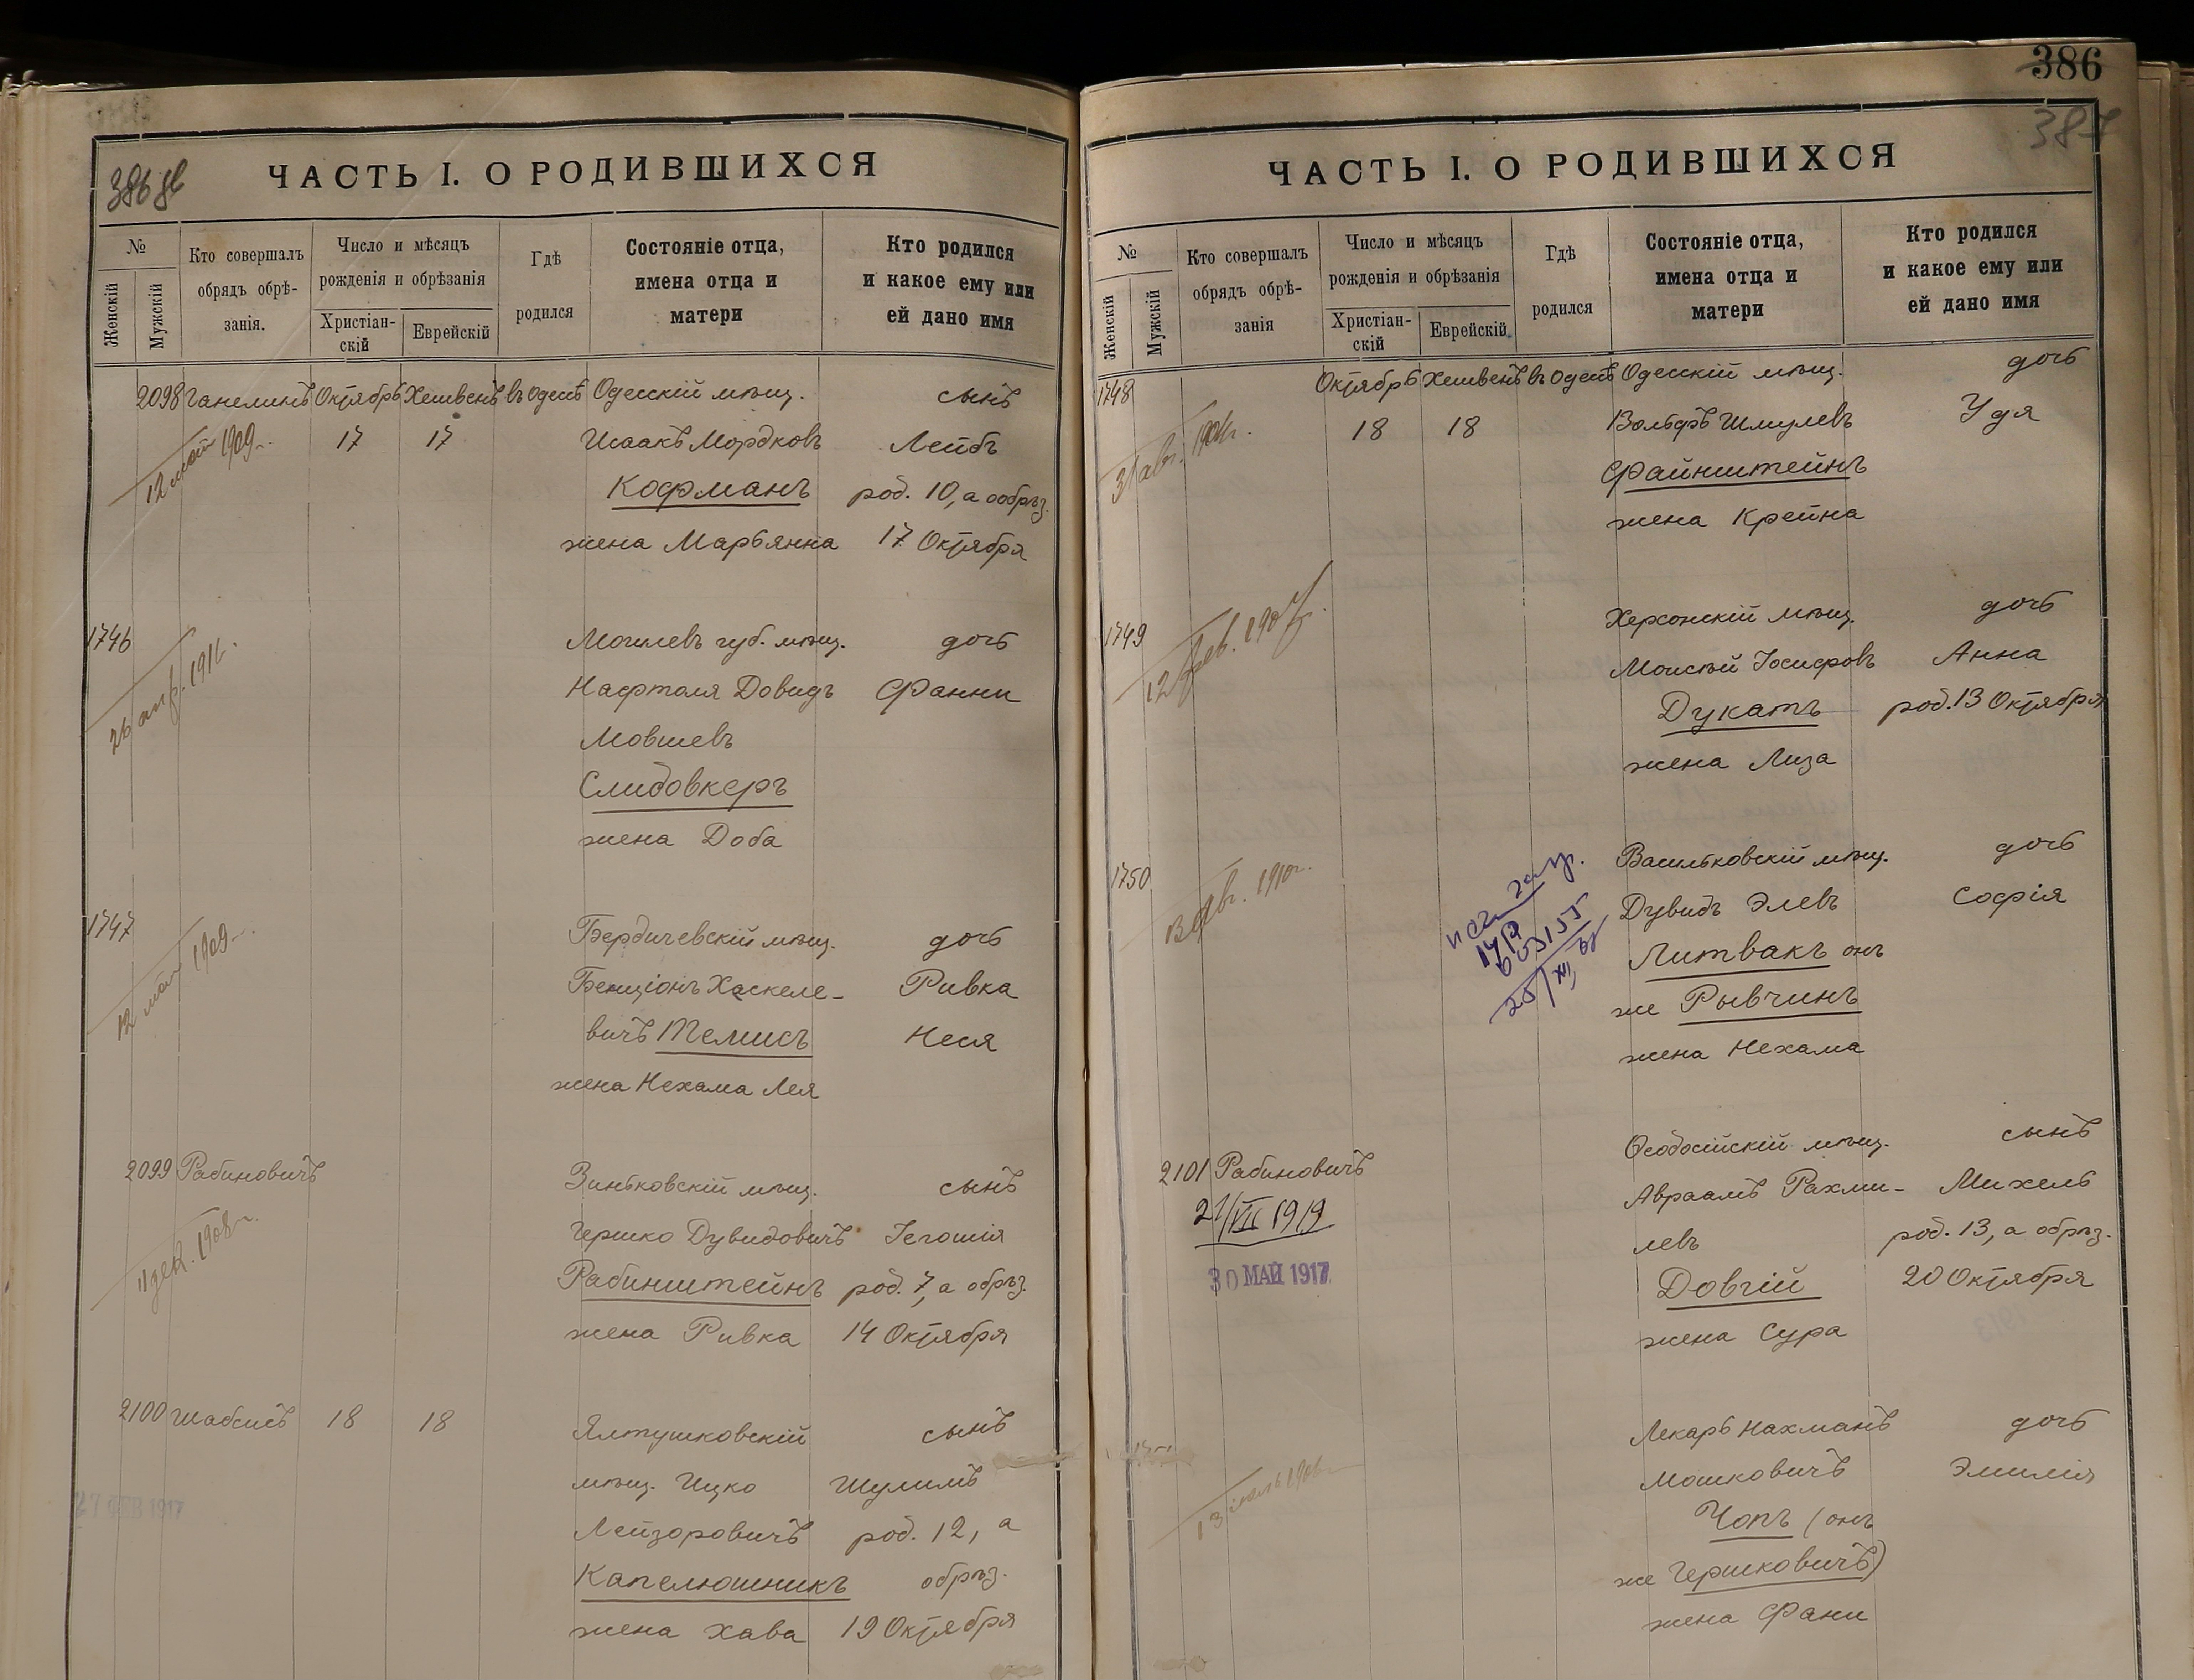 386 об
ЧАСТЬ I. О РОДИВШИХСЯ
№
Женскій
Мужскій
Кто совершалъ
обрядъ обрѣ-
занія.
Число и мѣсяцъ
рожденія и обрѣзанія
Христіан-
скій
Еврейскій
Гдѣ
родился
Состояніе отца,
имена отца и
матери
Кто родился
и какое ему или
ей дано имя
2098 Ганелинъ Октябрь Хешвенъ въ Одесѣ Одесскій мѣщ. сынъ
12 май 1909 17 17 Исаакъ Мордковъ Лейбъ
Кофманъ род. 10, а ообрѣз.
жена Марьянна 17 Октября
1746 Могилевъ губ. мѣщ. дочь
Нафтоля Довидъ Фанни
Мовшевъ
Слидовкеръ
жена Доба
1747 Бердичевскій мѣщ. дочь
12 май 1909 Бенціонъ Хаскеле- Ривка
вичъ Темисъ Неся
жена Нехама Лея
2099 Рабиновичъ Зиньковскій мѣщ. сынъ
11 дек. 1908 г. Гершко Дувидовичъ Іегошія
Рабинштейнъ род. 7, а обрѣз.
жена Ривка 14 Октября
2100 Шабсисъ 18 18 Ялтушковскій сынъ
мѣщ. Ицко Шулимъ
1917 Лейзоровичъ род. 12, а
Капелюшникъ обрѣз.
жена Хава 19 Октября
386
387
ЧАСТЬ I. О РОДИВШИХСЯ
№
Женскій
Мужскій
Кто совершалъ
обрядъ обрѣ-
занія
Число и мѣсяцъ
рожденія и обрѣзанія
Христіан-
скій
Еврейскій
Гдѣ
родился
Состояніе отца,
имена отца и
матери
Кто родился
и какое ему или
ей дано имя
1748 Октябрь Хешвенъ въ Одесѣ Одесскій мѣщ. дочь
18 18 Вольфъ Шмулевъ Удя
Файнштейнъ
жена Крейна
1749 Херсонскій мѣщ. дочь
12 фев. 1907 Моисѣй Іосифовъ Анна
Дукатъ род. 13 Октября
жена Лиза
1750 Васильковскій мѣщ. дочь
1910 г. Дувидъ Элевъ Софія
Литвакъ онъ
же Рывчинъ
жена Нехама
2101 Рабиновичъ Ѳеодосійскій мѣщ. сынъ
21/VII 1919 Авраамъ Рахми- Михель
левъ род. 13, а обрѣз.
30 МАЙ 1917 Довгій 20 Октября
жена Сура
Лекарь Нахманъ дочь
Мошковичъ Эмилія
Чопъ (онъ
же Гершковичъ)
жена Фани